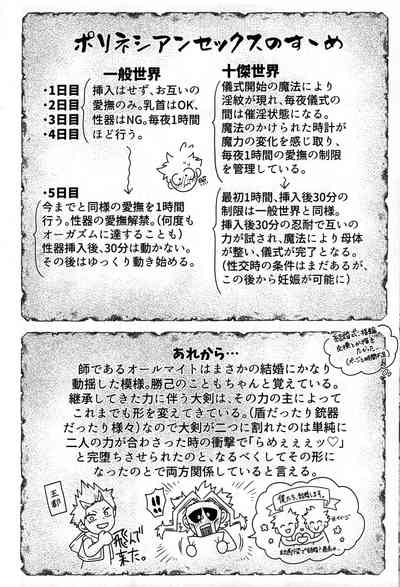 ポリネシアンセックスのすゝめ
一般世界
・1日目
・2日目
・3日目
・4日目
挿入はせず、お互いの
愛撫のみ。乳首はOK、
性器はNG。毎夜1時間
ほど行う。
・5日目
今までと同様の愛撫を1時間
行う。性器の愛撫解禁。（何度も
オーガズムに達することも）
性器挿入後、30分は動かない。
その後はゆっくり動き始める。
十傑世界
儀式開始の魔法により
淫紋が現れ、毎夜儀式の
間は催淫状態になる。
魔法のかけられた時計が
魔力の変化を感じ取り、
毎夜1時間の愛撫の制限
を管理している。
最初1時間、挿入後30分の
制限は一般世界と同様。
挿入後30分の忍耐で互いの
力が試され、魔法により母体
が整い、儀式が完了となる。
（性交時の条件はまだあるが、
この後から妊娠が可能に）
あれから…
師であるオールマイトはまさかの結婚にかなり
動揺した模様。勝己のこともちゃんと覚えている。
継承してきた力に伴う大剣は、その力の主によって
これまでも形を変えてきている。（盾だったり銃器
だったり様々）なので大剣が二つに割れたのは単純に
二人の力が合わさった時の衝撃で「らめぇぇぇッ♡」
と完堕ちさせられたのと、なるべくしてその形に
なったのとで両方関係していると言える。
王都
飛んで
来た。
!!
僕たち、結婚します。
※イメージ